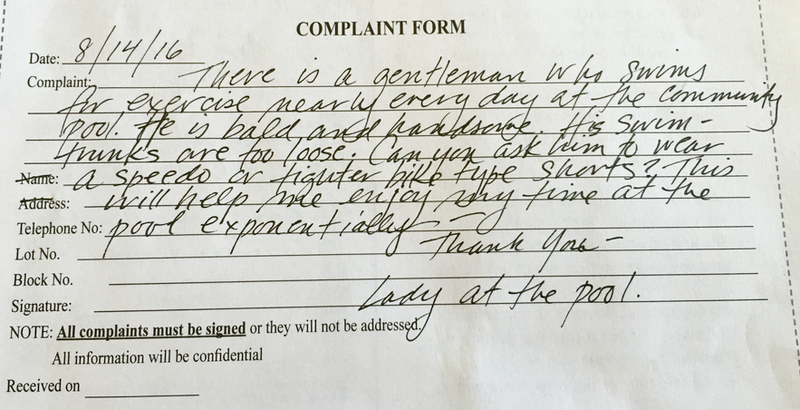 COMPLAINT FORM
Date: 8/14/16
Complaint: There is a gentleman who swims
for exercise nearly every day at the community
pool. He is bald and handsome. His swim-
trunks are too loose. Can you ask him to wear
Name: a speedo or tighter bike type shorts? This
Address: will help me enjoy my time at the
Telephone No: pool exponentially —
Lot No. Thank You —
Block No.
Signature: Lady at the pool.
NOTE: All complaints must be signed or they will not be addressed.
All information will be confidential
Received on